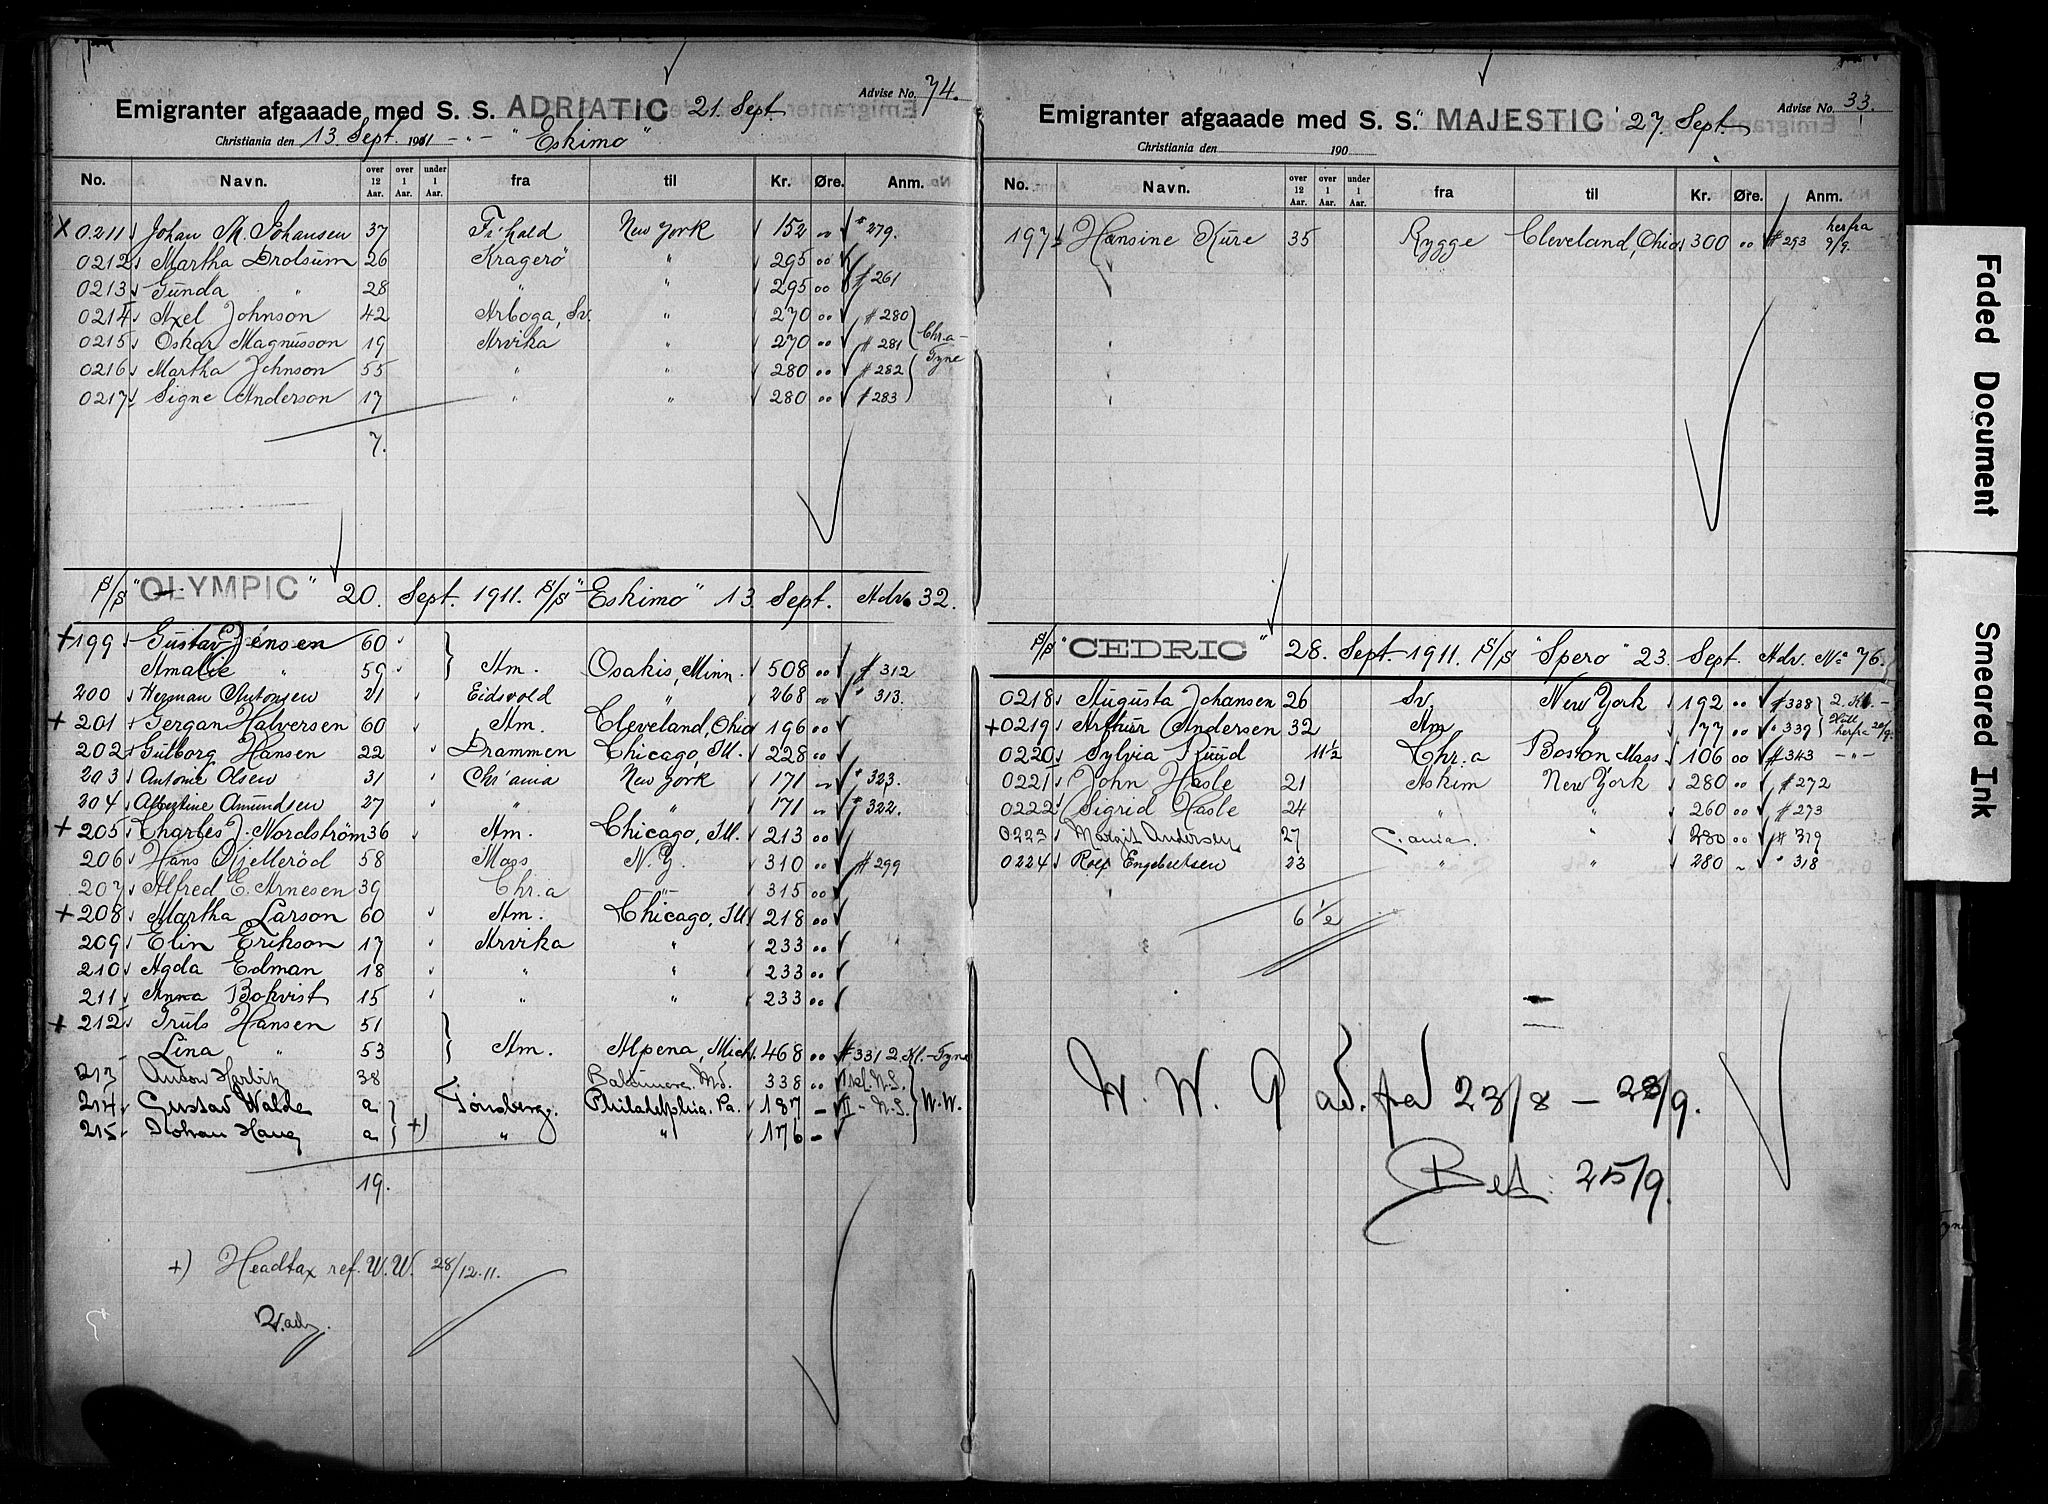 Advise No. 74.
Emigranter afgaaade med S. S. ADRIATIC 21 Sept
Christiania den 13 Sept. 1911 -"- "Eskimo"
No. Navn. over 12 Aar. over 1 Aar. under 1 Aar. fra til Kr. Øre. Anm.
X 0211 Johan M. Johansen 37 Fr.hald New York 152 " " 279.
0212 Martha Drolsum 26 Kragerö " 295 00
0213 Gunda " 28 " " 295 00 # 261
0214 Axel Johnson 42 Arboga, Sv. " 270 00 # 280
0215 Oskar Magnusson 19 Arvika " 270 00 # 281 Chr.a - Tyne
0216 Martha Johnson 55 " " 280 00 # 282
0217 Signe Anderson 17 " " 280 00 # 283
7.
S/S "OLYMPIC" 20. Sept. 1911. S/S "Eskimo" 13 Sept. Adv. 32.
+ 199 Gustav C. Jensen 60
Amalie " 59 Am. Osakis, Minn. 508 00 # 312
200 Herman Antonsen 21 Eidsvold " 268 " " 313.
+ 201 Gergan Halversen 60 Am. Cleveland, Ohio 196 00
202 Gulborg Hansen 22 Drammen Chicago, Ill. 228 00
203 Antonie Olsen 31 Chr'ania New York 171 " " 323.
204 Albertine Amundsen 27 " " 171 " " 322.
+ 205 Charles J. Nordström 36 Am. Chicago, Ill. 213 00
206 Hans Gjelleröd 58 Moss N.Y. 310 00 # 299
207 Alfred E. Arnesen 39 Chr.a " 315 00
+ 208 Martha Larson 60 Am. Chicago, Ill. 218 00
209 Elin Erikson 17 Arvika " 233 00
210 Agda Edman 18 " " 233 00
211 Anna Bokvist 15 " " 233 00
+ 212 Truls Hansen 51
Lina " 53 Am. Alpena, Mich. 468 00 # 331 2. Kl. - Tyne
213 Anton 38 Baltimore. Md. 338 00 1 kl. N.S.
214 Gustav Walde a Tönsberg. Philadelphia. Pa. 187 - II - N.S. W.W.
215 Johan Haug a +) " " 176 -
19.
+) Headtax ref. W.W. 28/12.11.
Advise No. 33.
Emigranter afgaaade med S. S. "MAJESTIC" 27. Sept.
Christiania den 190
No. Navn. over 12 Aar. over 1 Aar. under 1 Aar. fra til Kr. Øre. Anm.
197 Hansine Kure 35 Rygge Cleveland, Ohio 300 00 # 293 herfra 9/9.
S/S "CEDRIC" 28. Sept. 1911. S/S "Spero" 23. Sept. Adv. No 76.
0218 Augusta Johansen 26 Sv. New York 192 00 # 338 2. Kl. -
+ 0219 Arthur Andersen 32 Am " 177 00 " 339 Hull herfra 20/9.
0220 Sylvia Ruud 11 1/2 Chr.a Boston Mass 106 00 # 343 -"-
0221 John Hasle 21 Askim New York 280 00 # 272
0222 Sigrid Hasle 24 " " 260 00 # 273
0223 Margit Andersen 27 C'ania. " 280 00 # 319
0224 Rolf Engebretsen 23 " " 280 " " 318
6 1/2
W. W. G ad. fra 23/8 - 23/9.
Bet: 25/9.
Faded Document
Smeared Ink